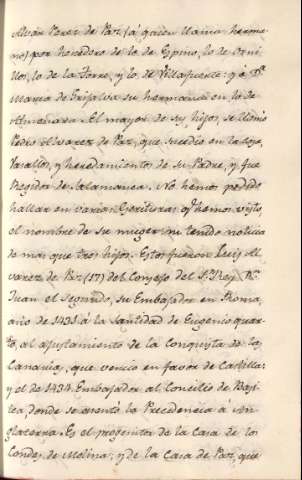 Alvar Perez de Paz, (á quien llama herma-
no) por heredero de lo de Espino, lo de Orni-
llos, lo de la Torre, y lo de Villafuerte: y á Dª
Maria de Grijalva su hermana en lo de
Almenara. El mayor de sus hijos, se llamó
Pedro Alvarez de Paz, que sucedio en la Casa,
Vasallos, y heredamientos de su Padre, y fue
Regidor de Salamanca. No hemos podido
hallar en varias Escrituras q hemos visto,
el nombre de su muger, ni tenido noticia
de mas que tres hijos. Estos fueron Luis Al
varez de Paz (17) del Consejo del S. Rey Dn.
Juan el segundo, su Embajador en Roma,
año de 1431 á la Santidad de Eugenio quar-
to, al ajustamiento de la Conquista de las
Canarias, que vencio en favor de Castilla:
y el de 1434 Embajador al Concilio de Basi-
lea, donde se asentó la Precidencia á Yn-
glaterra. Es el progenitor de la Casa de los
Condes de Molina; y de la Casa de Paz, que